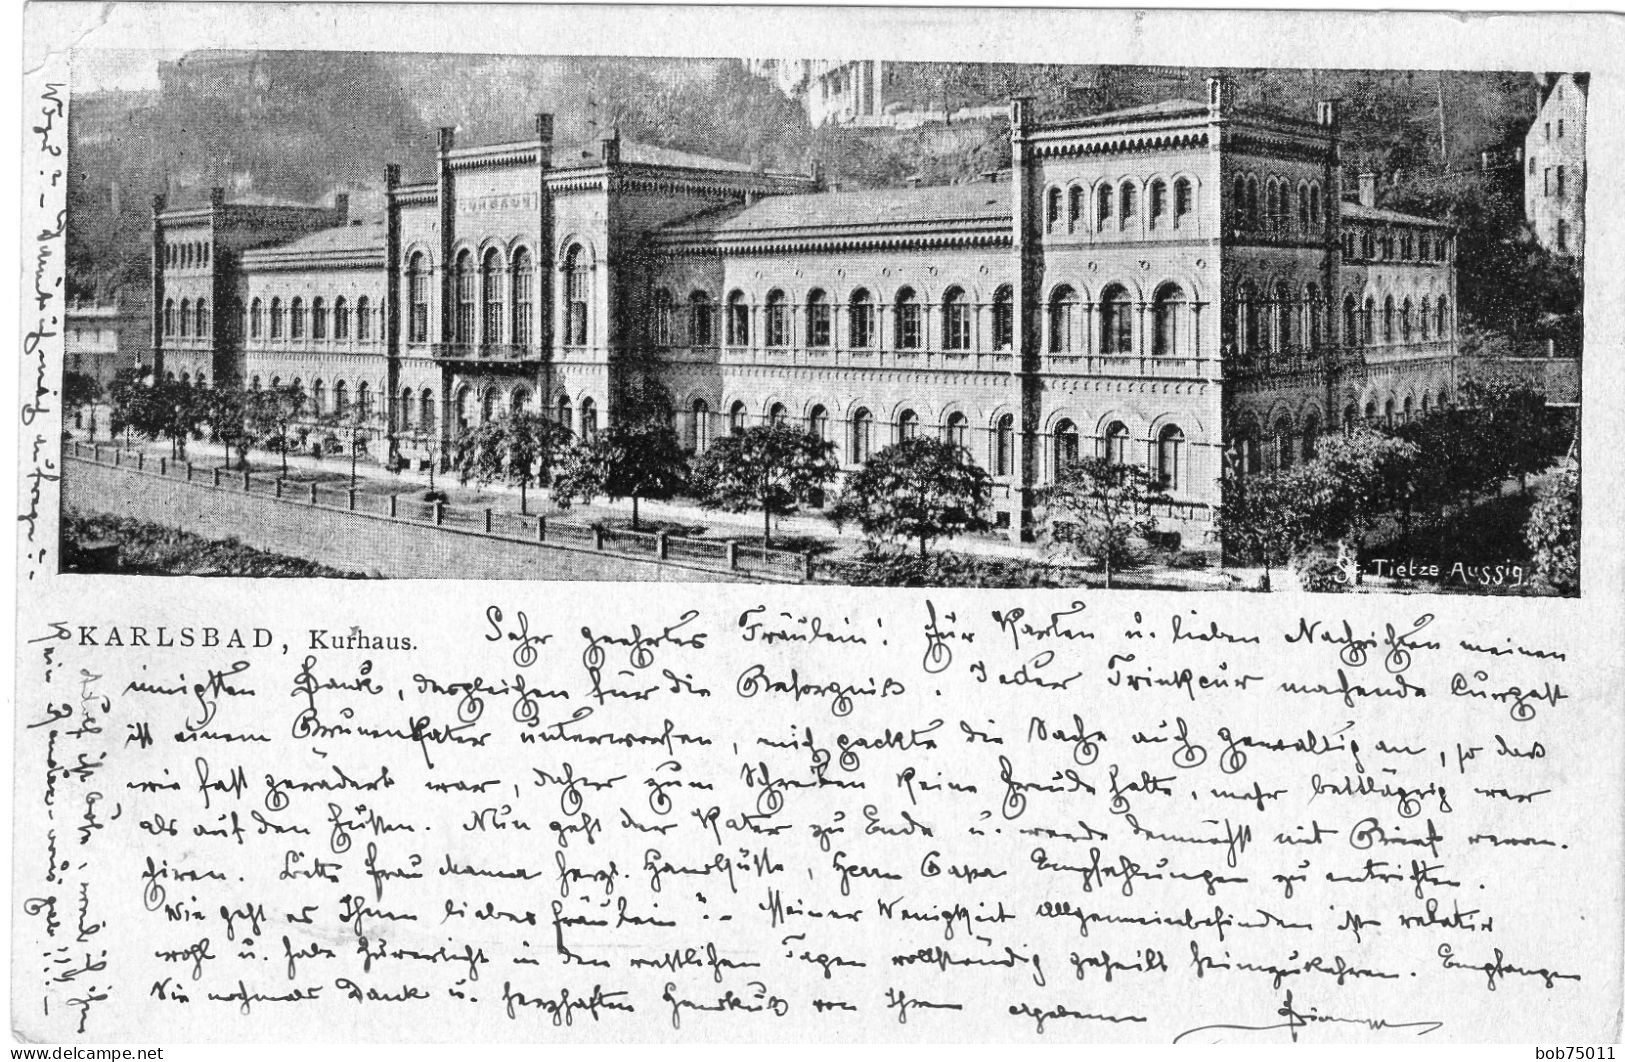 KURHAUS
St. Tietze Aussig.
KARLSBAD, Kurhaus.
Sehr geehrtes Fräulein! Für Karten u. lieben Nachrichten meinen
innigsten Dank, desgleichen für die Besorgniß. Jeder Trinkcur machende Curgast
ist einem Brunenkater unterworfen, mich packte die Sache auch gewaltig an, so daß
wie fast gerädert war, daher zum Schreiben keine Freude hatte, mehr bettlägrig war
als auf den Füßen. Nun geht der Kater zu Ende u. werde demnächst mit Brief revan-
chiren. Bitte Frau Mama herzl. Handküsse, Herrn Papa Empfehlungen zu entrichten.
Wie geht es Ihnen liebes Fräulein?- Meiner Wenigkeit Allgemeinbefinden ist relativ
wohl u. habe Zuversicht in den restlichen Tagen vollständig geheilt heimzukehren. Empfangen
Sie nochmals Dank u. herzhaften Handkuß von Ihrem ergebenen
bob75011